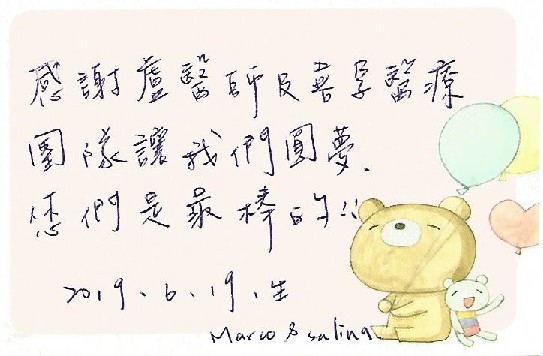 感謝盧醫師及喜孕醫療
團隊讓我們圓夢.
您們是最棒的!!
2019.6.19.生
Marco & salina